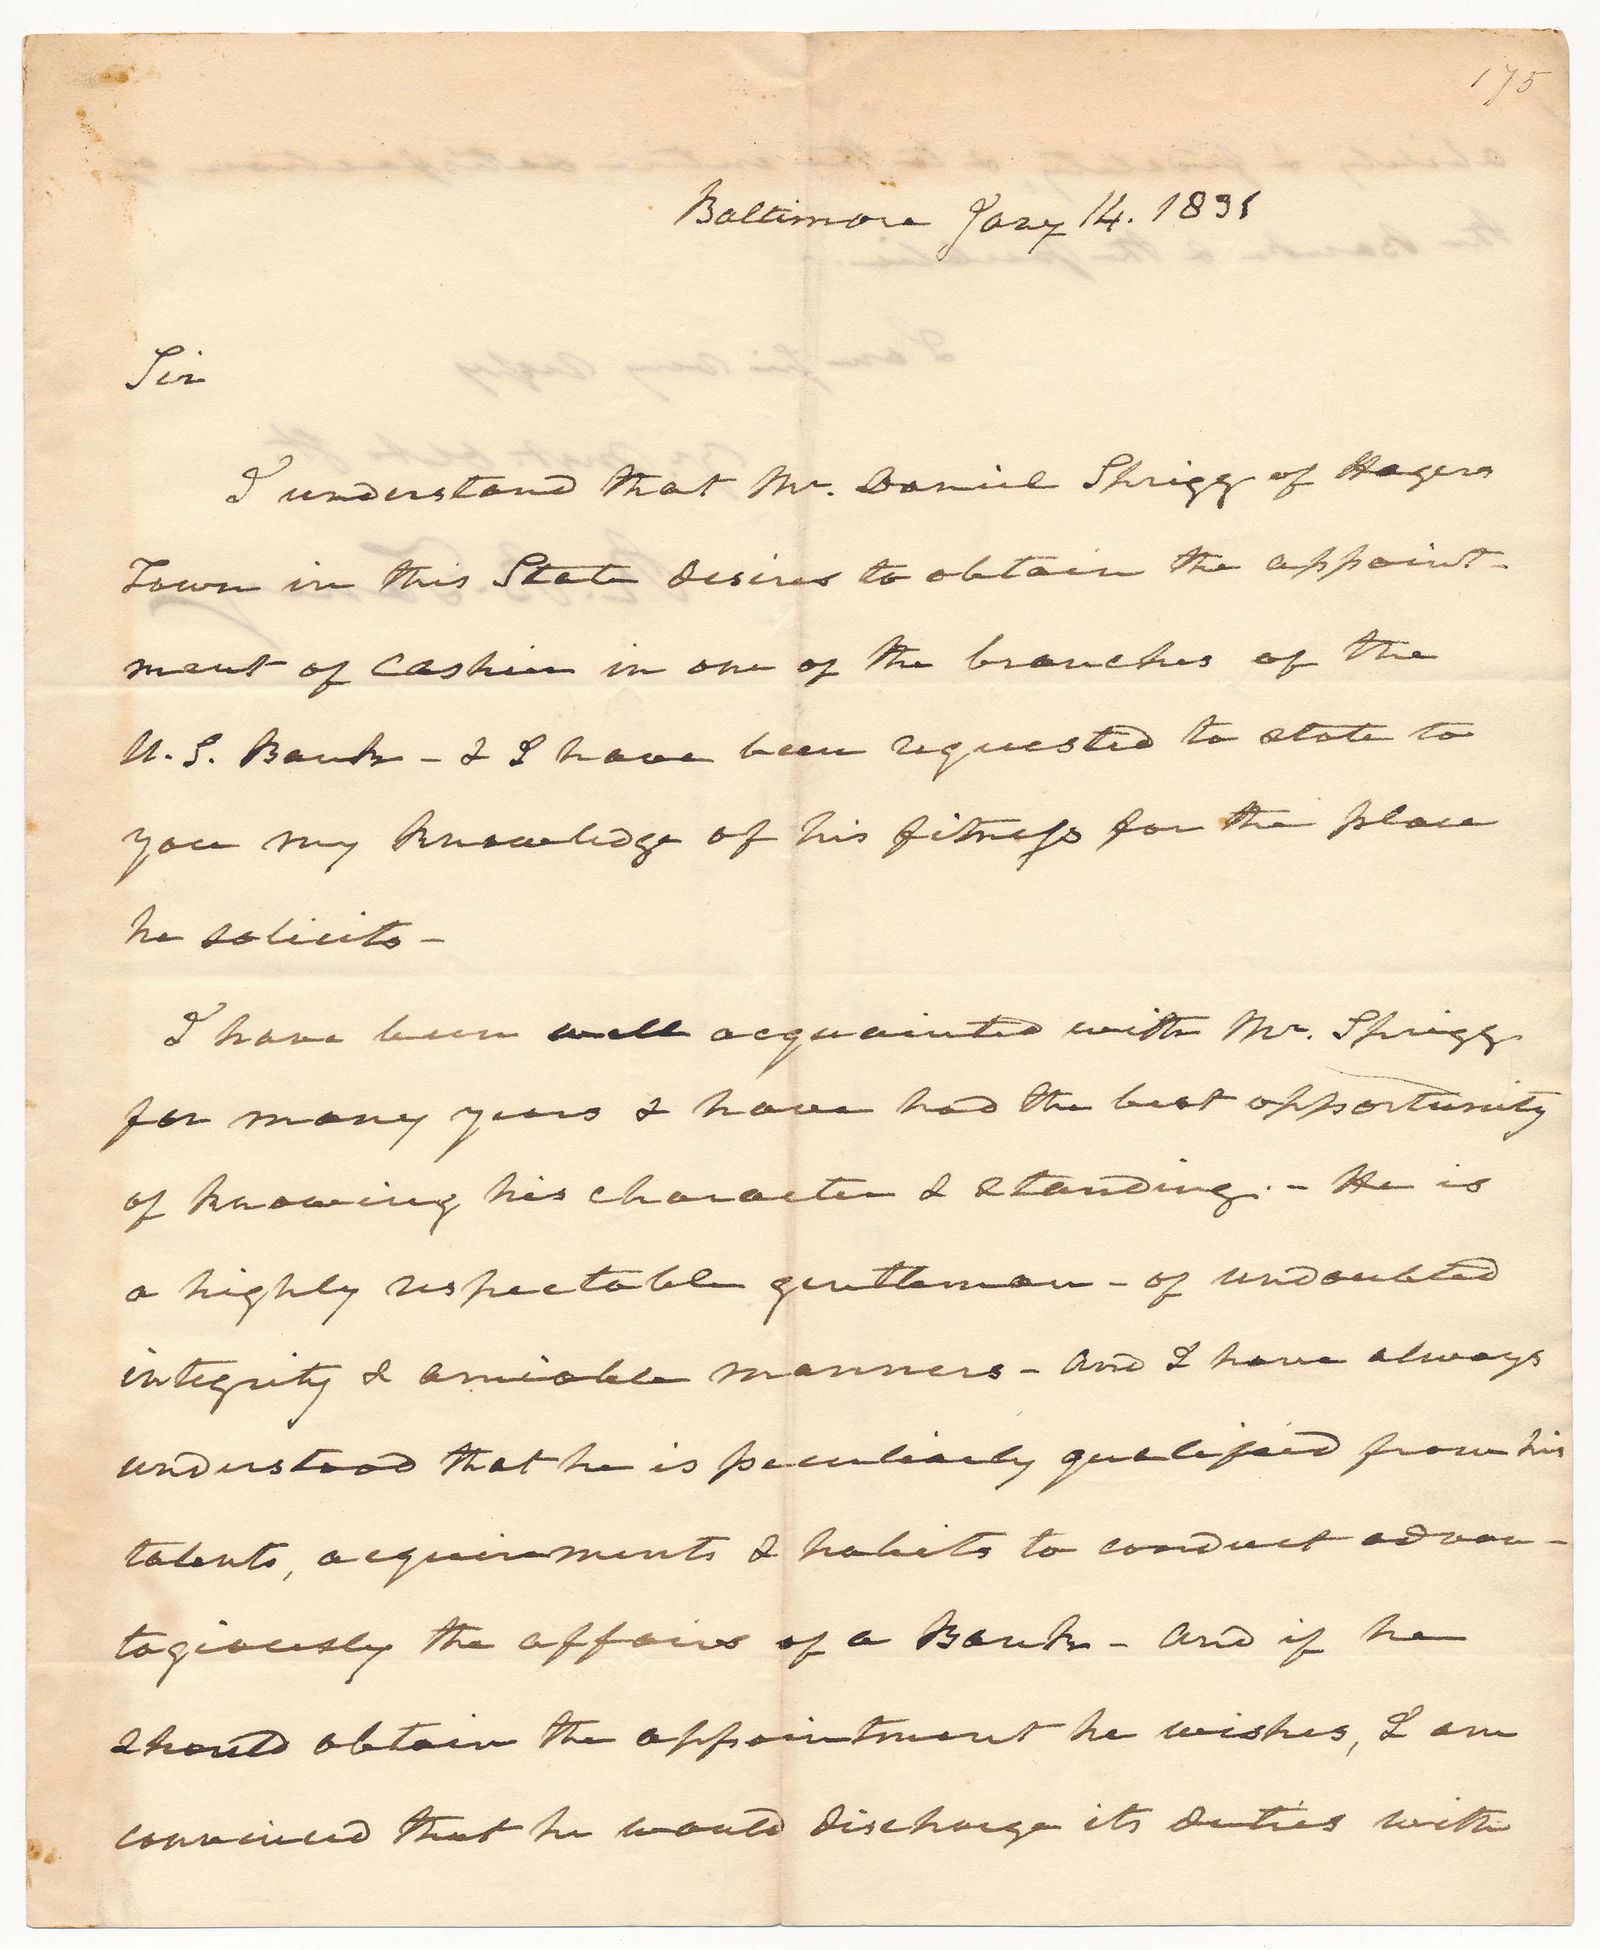 175
Baltimore Jany 14. 1831
Sir
I understand that Mr. Daniel Sprigg of Hagers
Town in this State desires to obtain the appoint-
ment of Cashier in one of the branches of the
U.S. Bank - & I have been requested to state to
you my knowledge of his fitness for the place
he solicits -
I have been well acquainted with Mr. Sprigg
for many years & have had the best opportunity
of knowing his character & standing. - He is
a highly respectable gentleman - of undoubted
integrity & amiable manners - and I have always
understood that he is peculiarly qualified from his
talents, acquirements & habits to conduct advan-
tagiously the affairs of a Bank - and if he
should obtain the appointment he wishes, I am
convinced that he would discharge its duties with